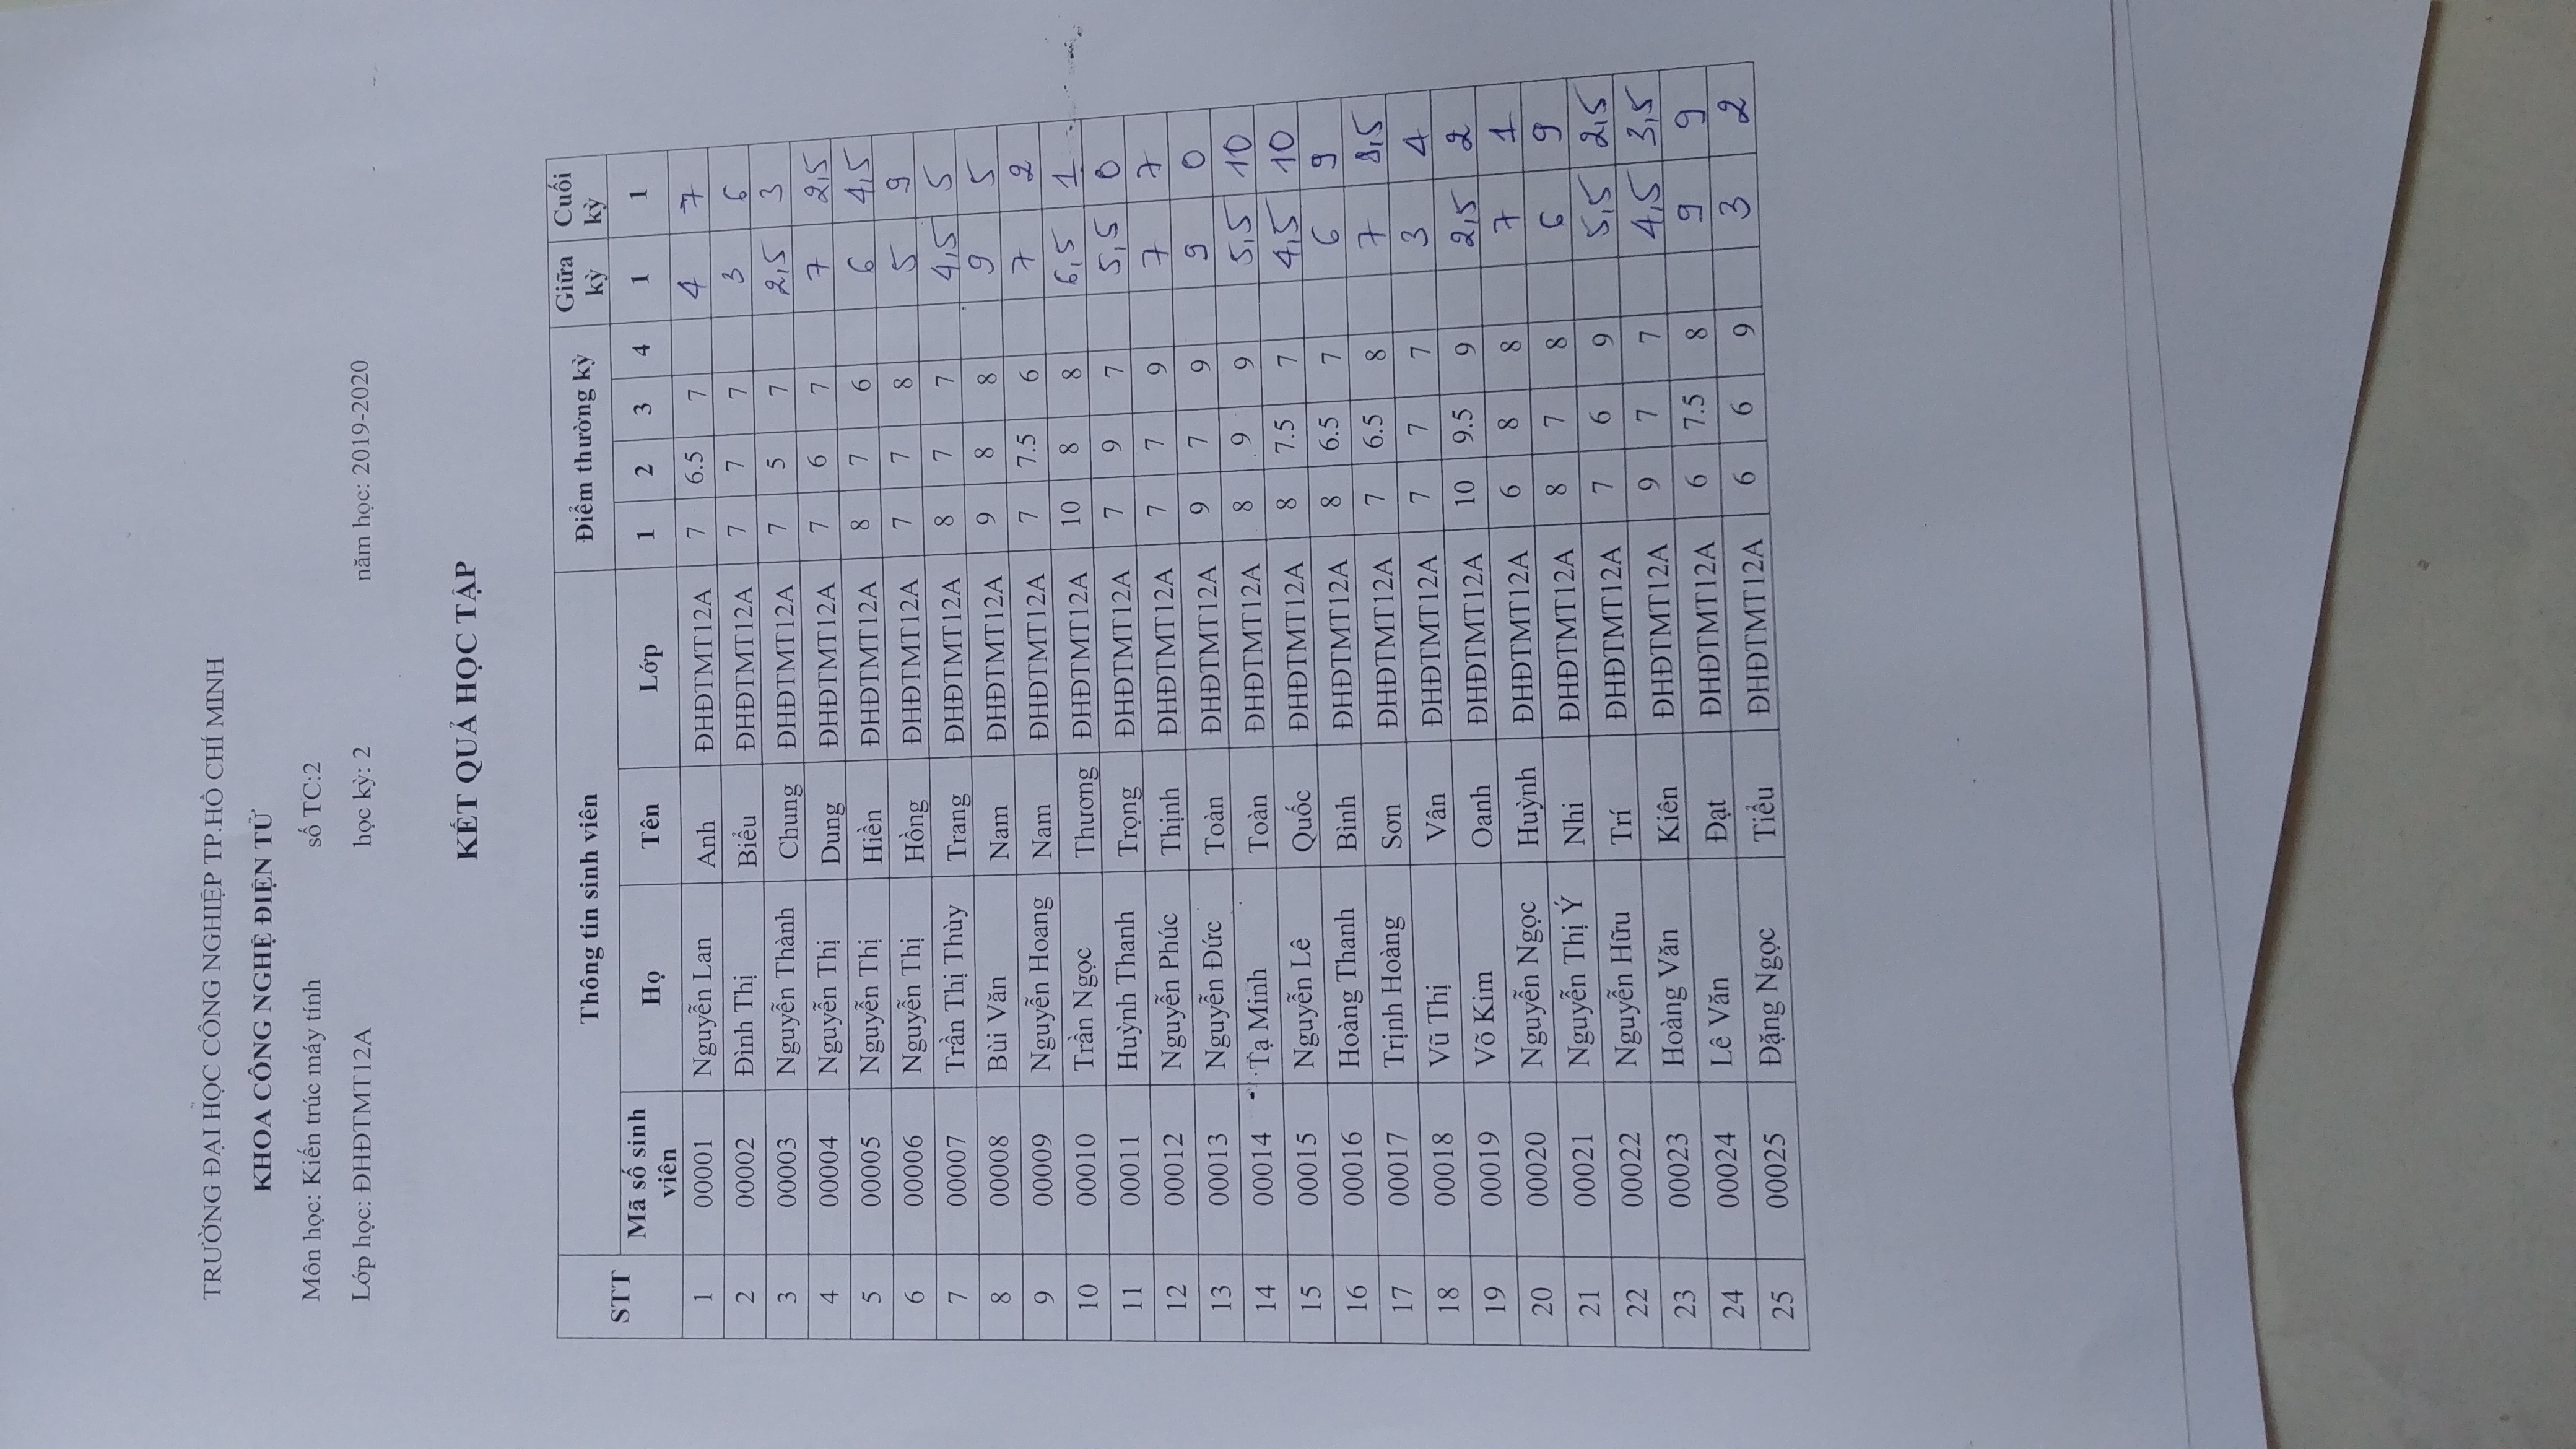 TRƯỜNG ĐẠI HỌC CÔNG NGHIỆP TP.HỒ CHÍ MINH
KHOA CÔNG NGHỆ ĐIỆN TỬ
Môn học: Kiến trúc máy tính số TC:2
Lớp học: ĐHĐTMT12A học kỳ: 2 năm học: 2019-2020
KẾT QUẢ HỌC TẬP
STT Thông tin sinh viên Điểm thường kỳ Giữa kỳ Cuối kỳ
Mã số sinh viên Họ Tên Lớp 1 2 3 4 1 1
1 00001 Nguyễn Lan Anh ĐHĐTMT12A 7 6.5 7 4 7
2 00002 Đình Thị Biểu ĐHĐTMT12A 7 7 7 3 6
3 00003 Nguyễn Thành Chung ĐHĐTMT12A 7 5 7 2,5 3
4 00004 Nguyễn Thị Dung ĐHĐTMT12A 7 6 7 7 2,5
5 00005 Nguyễn Thị Hiền ĐHĐTMT12A 8 7 6 6 4,5
6 00006 Nguyễn Thị Hồng ĐHĐTMT12A 7 7 8 5 9
7 00007 Trần Thị Thùy Trang ĐHĐTMT12A 8 7 7 4,5 5
8 00008 Bùi Văn Nam ĐHĐTMT12A 9 8 8 9 5
9 00009 Nguyễn Hoang Nam ĐHĐTMT12A 7 7.5 6 7 2
10 00010 Trần Ngọc Thương ĐHĐTMT12A 10 8 8 6,5 1
11 00011 Huỳnh Thanh Trọng ĐHĐTMT12A 7 9 7 5,5 0
12 00012 Nguyễn Phúc Thịnh ĐHĐTMT12A 7 7 9 7 7
13 00013 Nguyễn Đức Toàn ĐHĐTMT12A 9 7 9 9 0
14 00014 Tạ Minh Toàn ĐHĐTMT12A 8 9 9 5,5 10
15 00015 Nguyễn Lê Quốc ĐHĐTMT12A 8 7.5 7 4,5 10
16 00016 Hoàng Thanh Bình ĐHĐTMT12A 8 6.5 7 6 9
17 00017 Trịnh Hoàng Sơn ĐHĐTMT12A 7 6.5 8 7 8,5
18 00018 Vũ Thị Vân ĐHĐTMT12A 7 7 7 3 4
19 00019 Võ Kim Oanh ĐHĐTMT12A 10 9.5 9 2,5 2
20 00020 Nguyễn Ngọc Huỳnh ĐHĐTMT12A 6 8 8 7 1
21 00021 Nguyễn Thị Ý Nhi ĐHĐTMT12A 8 7 8 6 9
22 00022 Nguyễn Hữu Trí ĐHĐTMT12A 7 6 9 5,5 2,5
23 00023 Hoàng Văn Kiên ĐHĐTMT12A 9 7 7 4,5 3,5
24 00024 Lê Văn Đạt ĐHĐTMT12A 6 7.5 8 9 9
25 00025 Đặng Ngọc Tiểu ĐHĐTMT12A 6 6 9 3 2